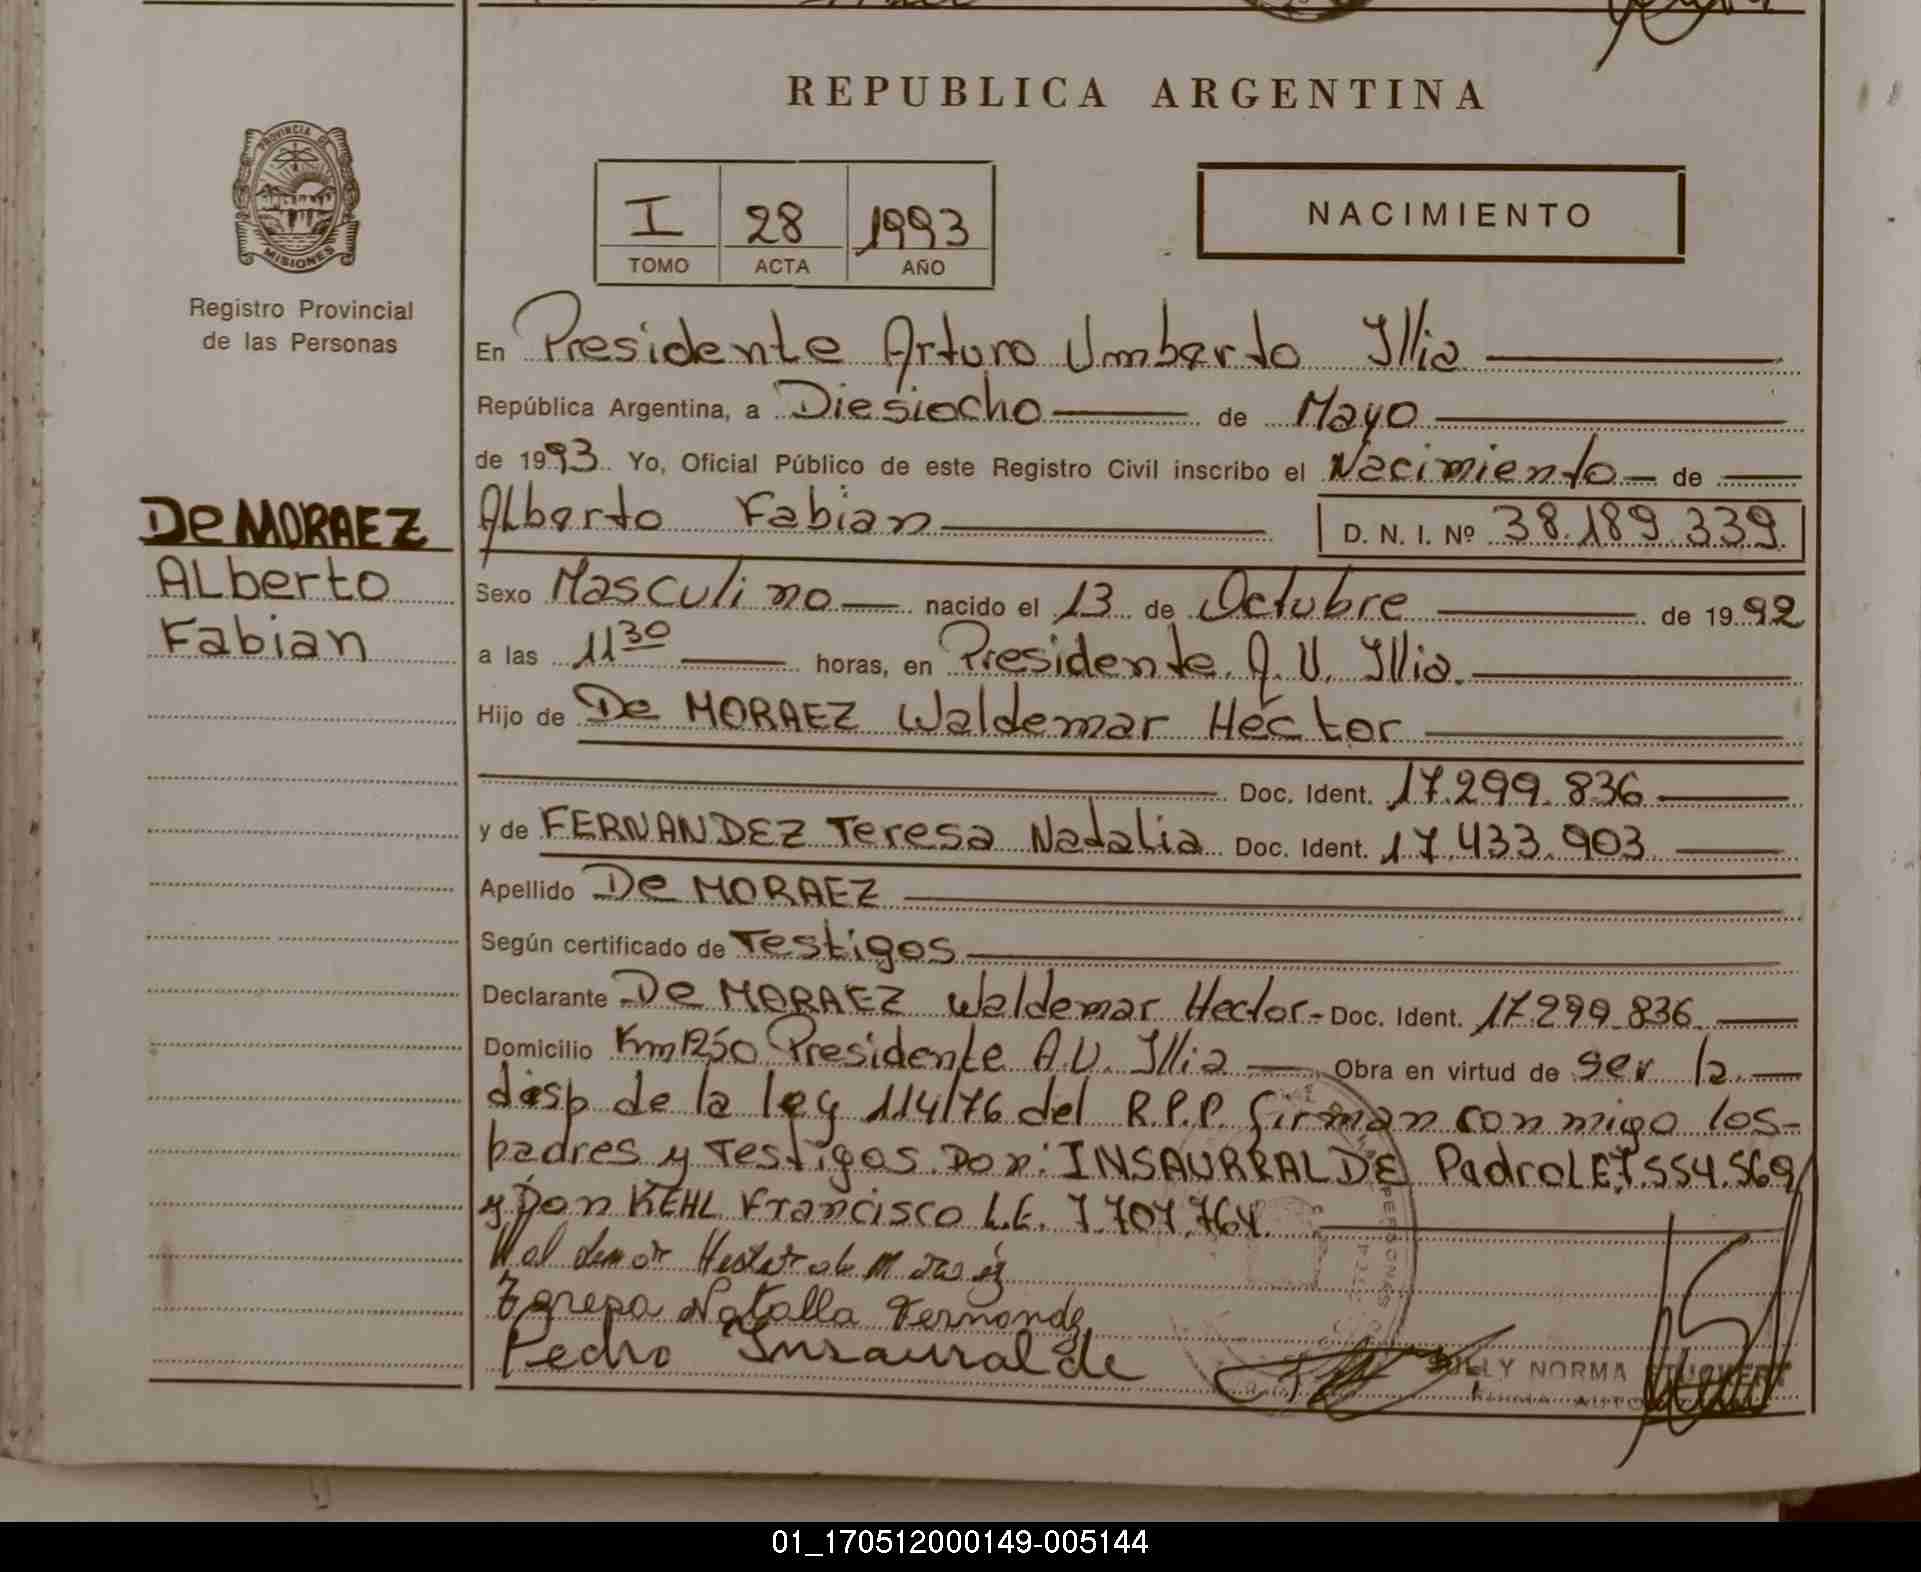 REPUBLICA ARGENTINA
PROVINCIA DE
MISIONES
Registro Provincial
de las Personas
I 28 1993
TOMO ACTA AÑO
NACIMIENTO
De MORAEZ
ALberto
Fabian
En Presidente Arturo Umberto Illia
República Argentina, a Diesiocho de Mayo
de 1993. Yo, Oficial Público de este Registro Civil inscribo el Nacimiento de
ALberto Fabian D. N. I. Nº 38.189.339
Sexo Masculino nacido el 13 de Octubre de 1992
a las 11 30 horas, en Presidente A. U. Illia.
Hijo de De MORAEZ Waldemar Héctor
Doc. Ident. 17.299.836
y de FERNANDEZ Teresa Nadalia Doc. Ident. 17.433.903
Apellido De MORAEZ
Según certificado de Testigos
Declarante De MORAEZ Waldemar Hector - Doc. Ident. 17.299.836
Domicilio Km 1250 Presidente A.U. Illia Obra en virtud de ser la
disp de la ley 114/76 del R.P.P. firman con migo los-
padres y Testigos Don: INSAURRALDE Padro L.E 7.554.569
y Don KEHL Francisco L.E. 7.707.764.
Teresa Natalla Fernande
Pedro Insauralde
LLY NORMA
01_170512000149-005144